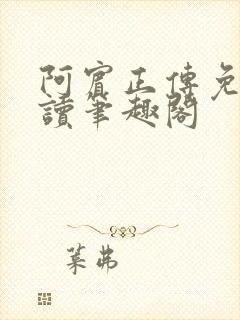 阿賓正傳免
讀筆趣閣
葉弗